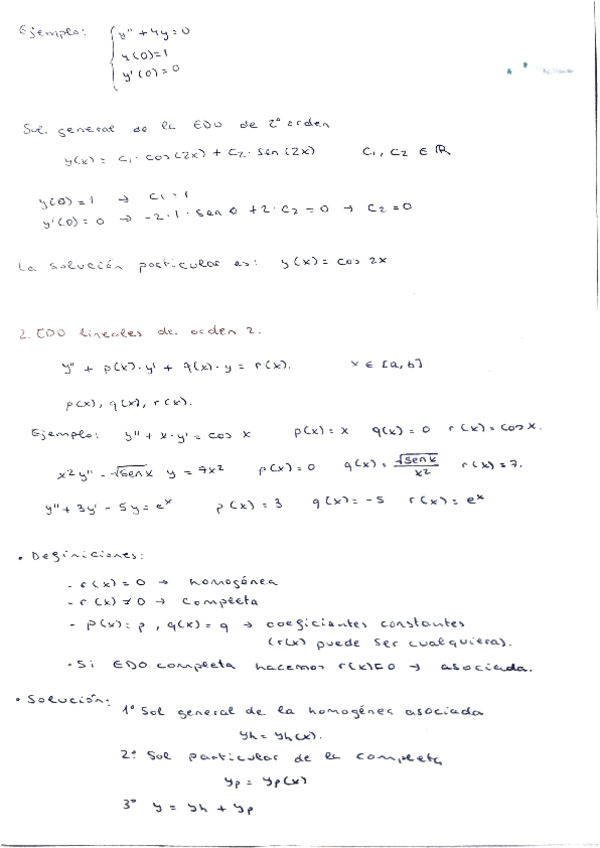 Ejemplo: { y'' + 4y = 0
y(0) = 1
y'(0) = 0
Sol. general de la EDO de 2º orden
y(x) = C1 · cos(2x) + C2 · sen(2x) C1, C2 ∈ ℝ
y(0) = 1 → C1 = 1
y'(0) = 0 → -2 · 1 · sen 0 + 2 · C2 = 0 → C2 = 0
La solución particular es: y(x) = cos 2x
2. EDO lineales de orden 2.
y'' + p(x) · y' + q(x) · y = r(x). x ∈ [a, b]
p(x), q(x), r(x).
Ejemplo: y'' + x · y' = cos x p(x) = x q(x) = 0 r(x) = cos x.
x² y'' - √sen x y = 7x² p(x) = 0 q(x) = √sen x / x² r(x) = 7.
y'' + 3y' - 5y = eˣ p(x) = 3 q(x) = -5 r(x) = eˣ
• Definiciones:
- r(x) = 0 → homogénea
- r(x) ≠ 0 → completa
- p(x) = p, q(x) = q → coeficientes constantes
(r(x) puede ser cualquiera).
- Si EDO completa hacemos r(x) = 0 → asociada.
• Solución:
1º Sol general de la homogénea asociada
yh = yh(x).
2º Sol particular de la completa
yp = yp(x)
3º y = yh + yp